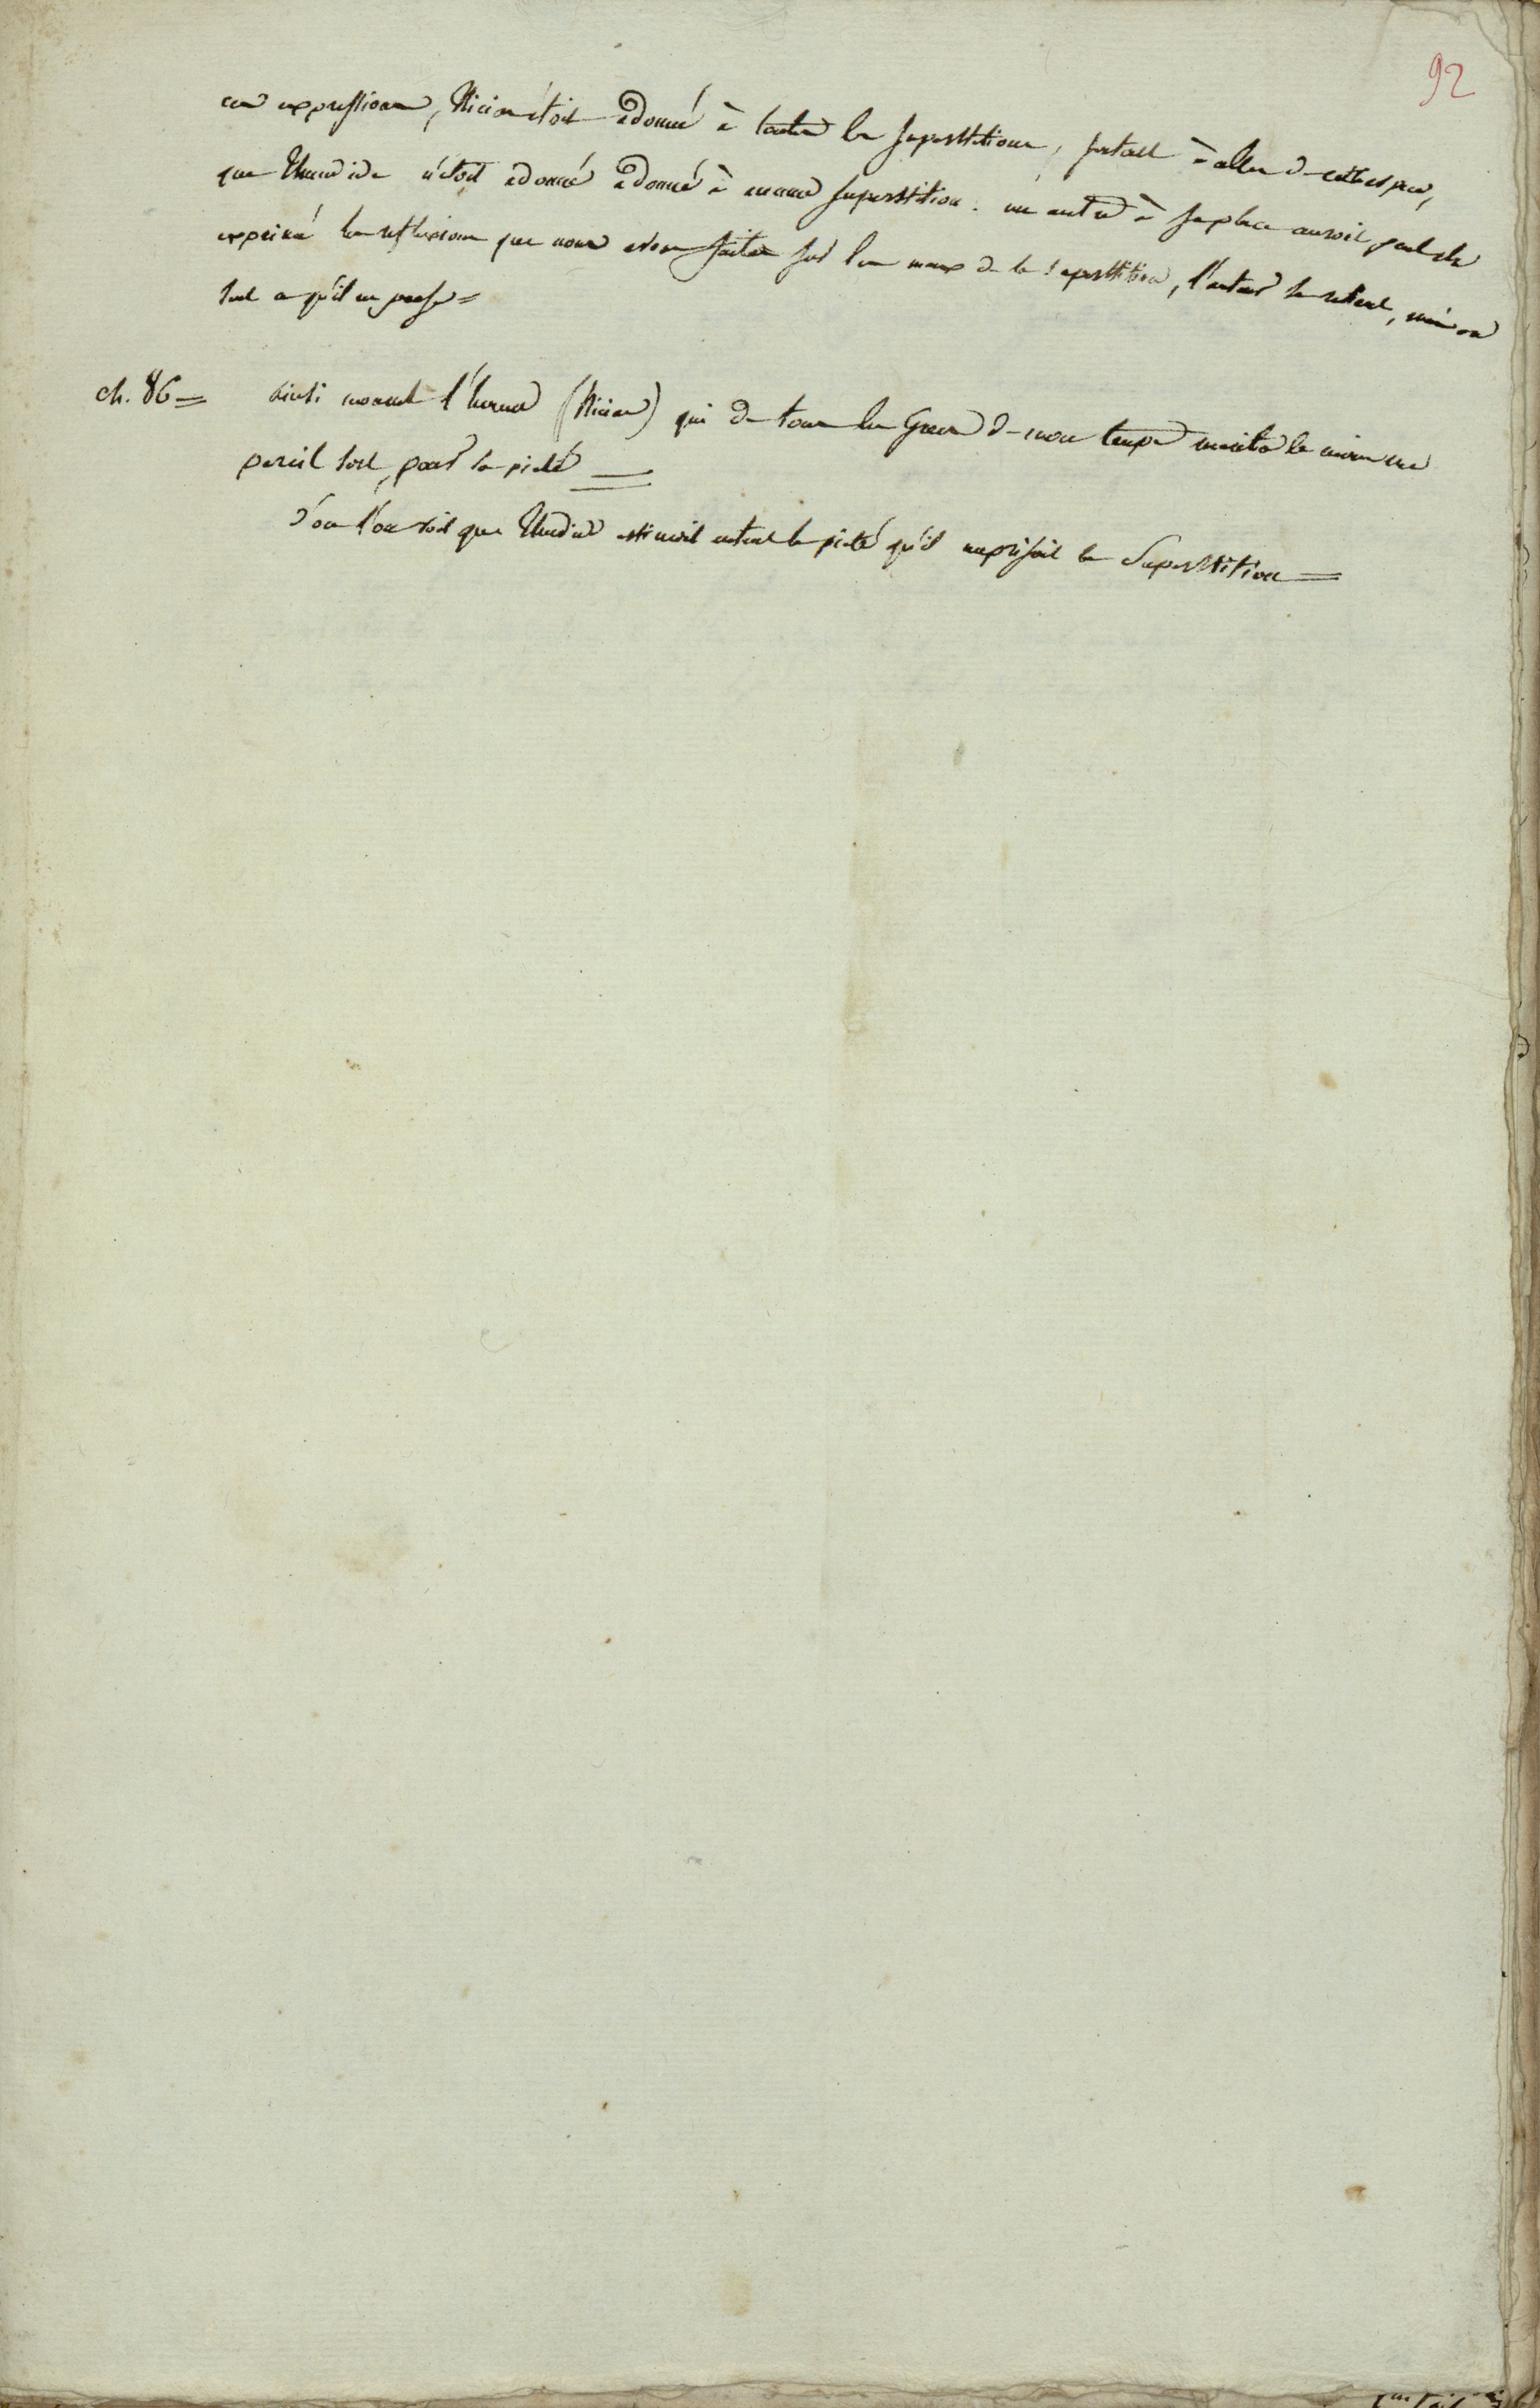 92
ces expressions, Nicias étoit adonné à toutes les superstitions, surtout à celles de cette espece,
que Thucidide n'étoit adonné adonné à aucune superstition. un autre à sa place auroit peut etre
exprimé les reflexions que nous avons faites sur les maux de la superstition, l'auteur se retient, mais on
sent ce qu'il en pense =
ch. 86 = ainsi mourut l'homme (Nicias) qui de tous les Grecs de mon temps merita le moins un
pareil sort, pour sa pieté =
d'ou l'on voit que Thucidide estimoit autant la pieté qu'il meprisoit la Superstition =